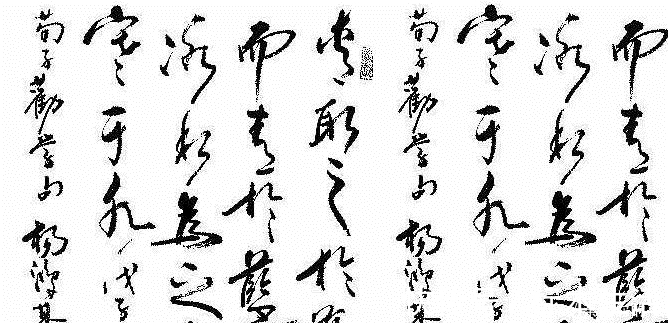 而青於藍
冰水為之
寒于水 戊子
荀子勸學句 楊鴻
青取之於
而青於藍
冰水為之
寒于水 戊子
荀子勸學句 楊鴻